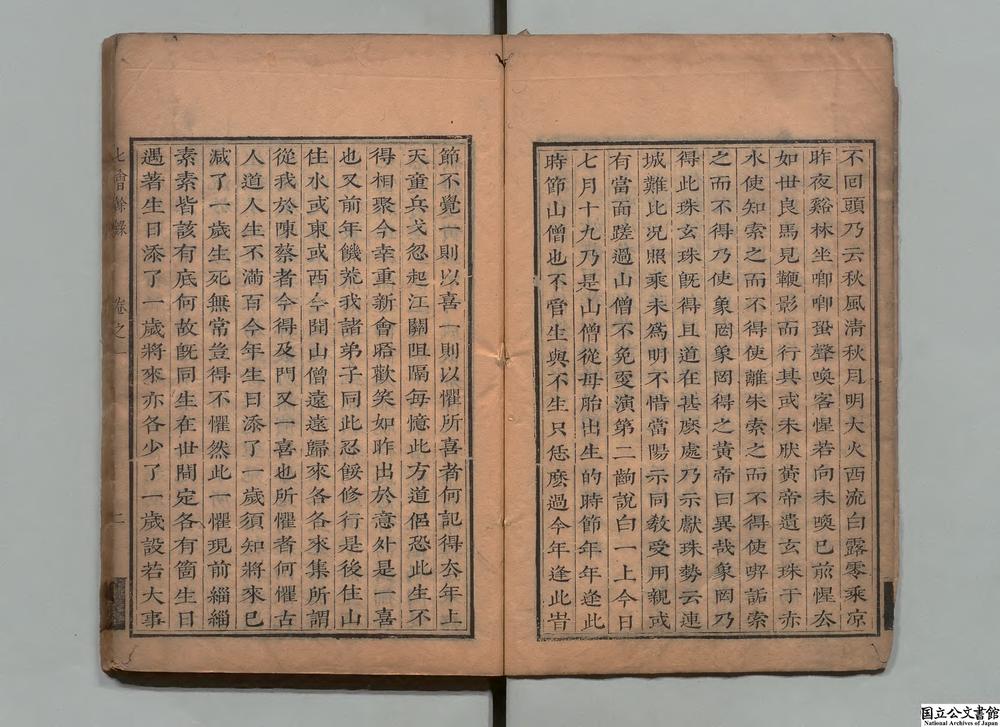 不回頭乃云秋風清秋月明大火西流白露零乘凉
昨夜谿林坐喞喞蛩聲喚客惺若向未喚已前惺去
如世良馬見鞭影而行其或未狀黄帝遺玄珠于赤
水使知索之而不得使離朱索之而不得使喫詬索
之而不得乃使象罔象罔得之黄帝曰異哉象罔乃
得此珠玄珠旣得且道在甚麽處乃示獻珠勢云連
城難比况照乘未爲明不惜當陽示同教受用親或
有當面蹉過山僧不免更演第二齣說白一上今日
七月十九乃是山僧從母胎出生的時節年年逢此
時節山僧也不管生與不生只恁麽過今年逢此昔
節不覺一則以喜一則以懼所喜者何記得去年上
天童兵戈忽起江關阻隔每憶此方道侶恐此生不
得相聚今幸重新會晤歡笑如昨出於意外是一喜
也又前年饑荒我諸弟子同此忍餒修行是後住山
住水或東或西今聞山僧遠遠歸來各各來集所謂
從我於陳蔡者今得及門又一喜也所懼者何懼古
人道人生不滿百今年生日添了一歲須知將來已
減了一歲生死無常豈得不懼然此一懼現前緇緇
素素皆該有底何故旣同生在世間定各有箇生日
遇著生日添了一歲將來亦各少了一歲設若大事
七會餘錄 卷之一 二
国立公文書館
National Archives of Japan